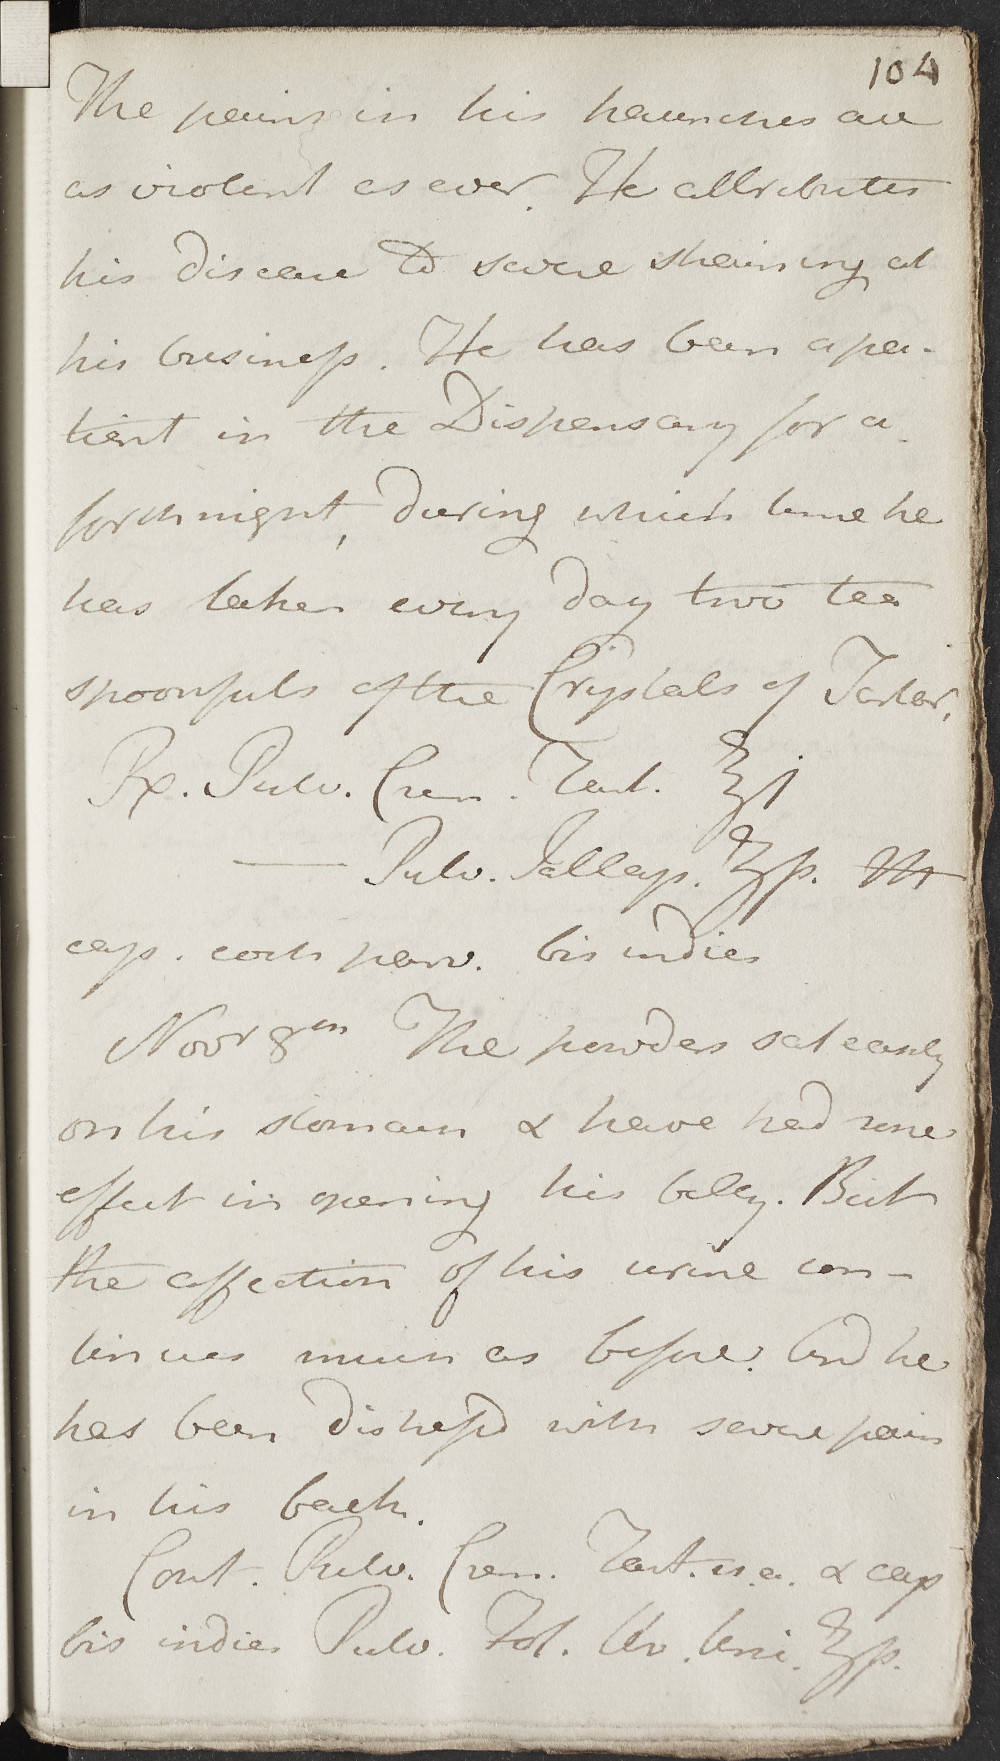 104
The pains in his haunches are
as violent as ever. He attributes
his disease to severe straining at
his business. He has been a pa-
tient in the Dispensary for a
forthnight, during which time he
has taken every day two tea
spoonfuls of the Crystals of Tartar.
Rx. Pulv. Crem. Tart. ℥j
— Pulv. Jallap. ʒß. M
cap. coch parv. bis indies
Novr 8th The powders sat easily
on his stomach & have had some
effect in opening his belly. But
the affection of his urine con-
tinues much as before. And he
has been distressd with severe pain
in his back.
Cont. Pulv. Crem. Tart. u.a. & cap
bis indies Pulv. Fol. Uv. Ursi. ʒß.